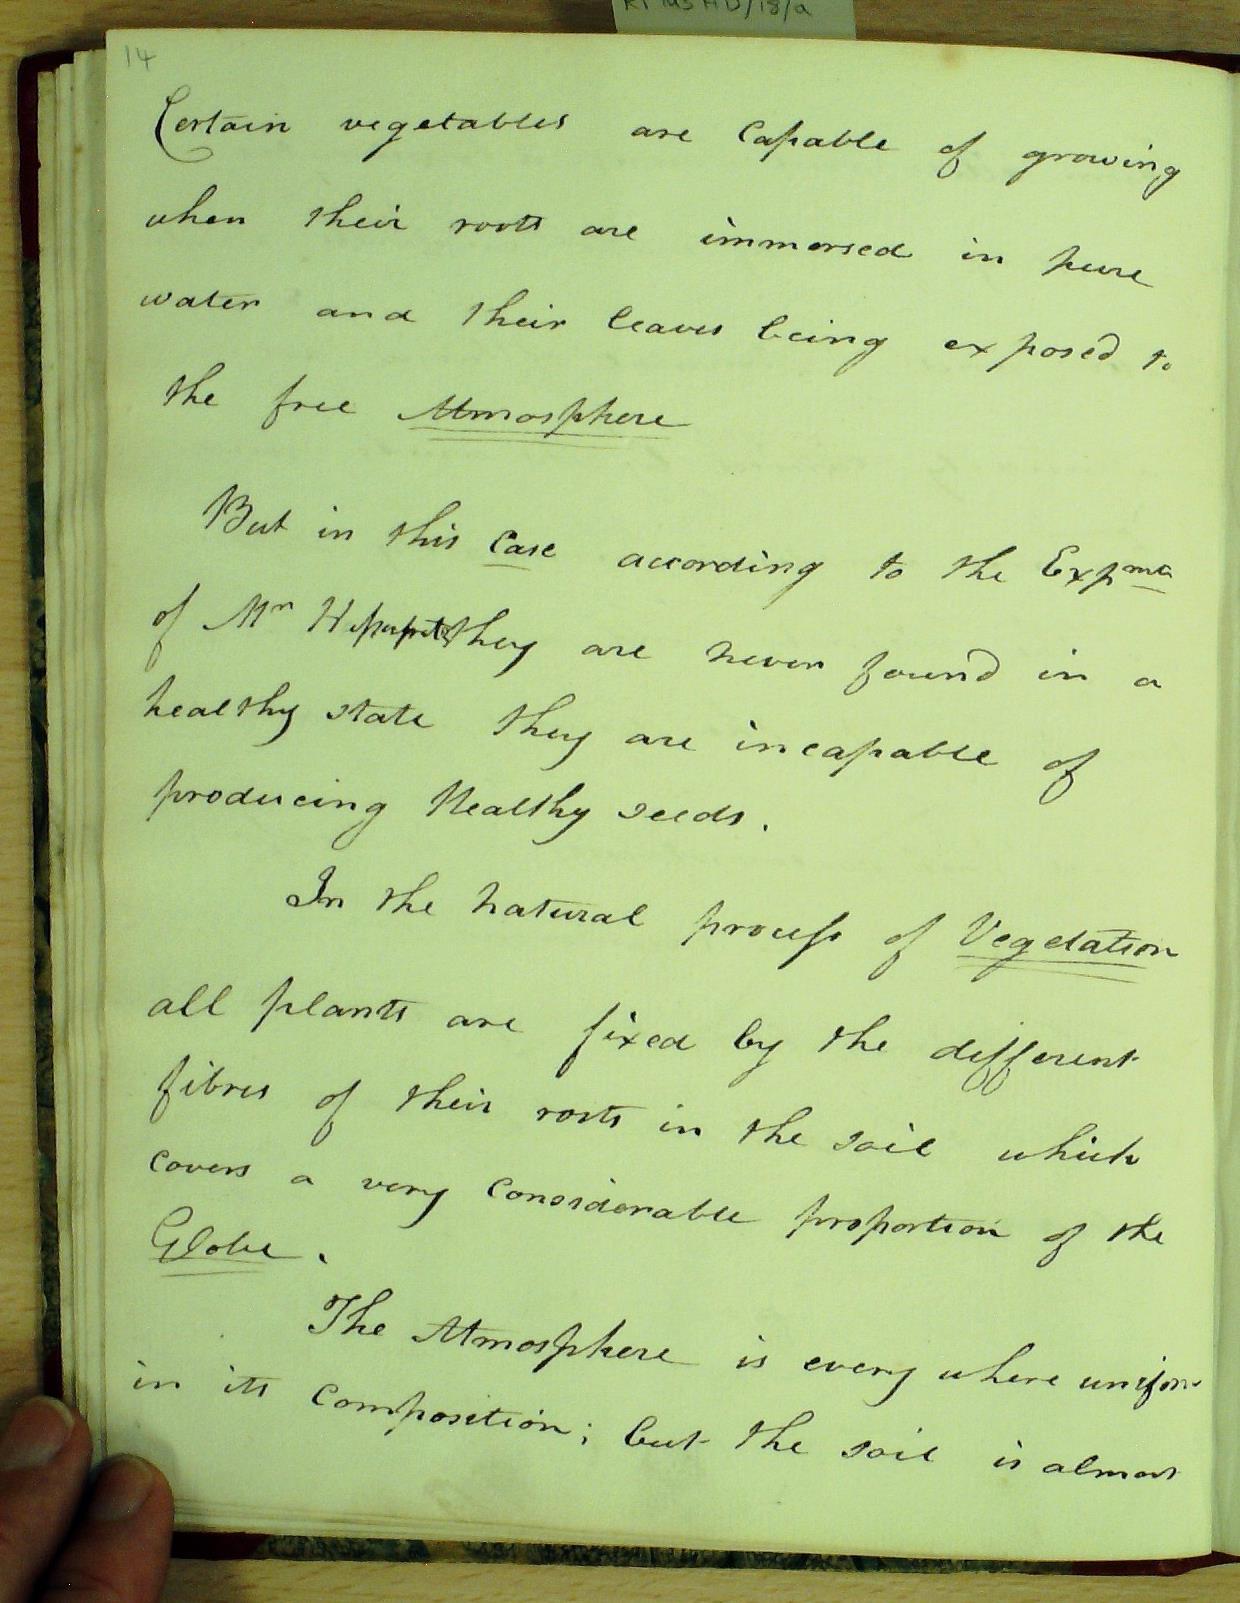 RI MS HD/18/a
14
Certain vegetables are Capable of growing
when their roots are immersed in pure
water and their leaves being exposed to
the free Atmosphere
But in this Case according to the Expmts
of Mr they are never found in a
healthy state they are incapable of
producing healthy seeds.
In the natural process of Vegetation
all plants are fixed by the different
fibres of their roots in the soil which
covers a very Considerable proportion of the
Globe.
The Atmosphere is every where uniform
in its Composition; but the soil is almost